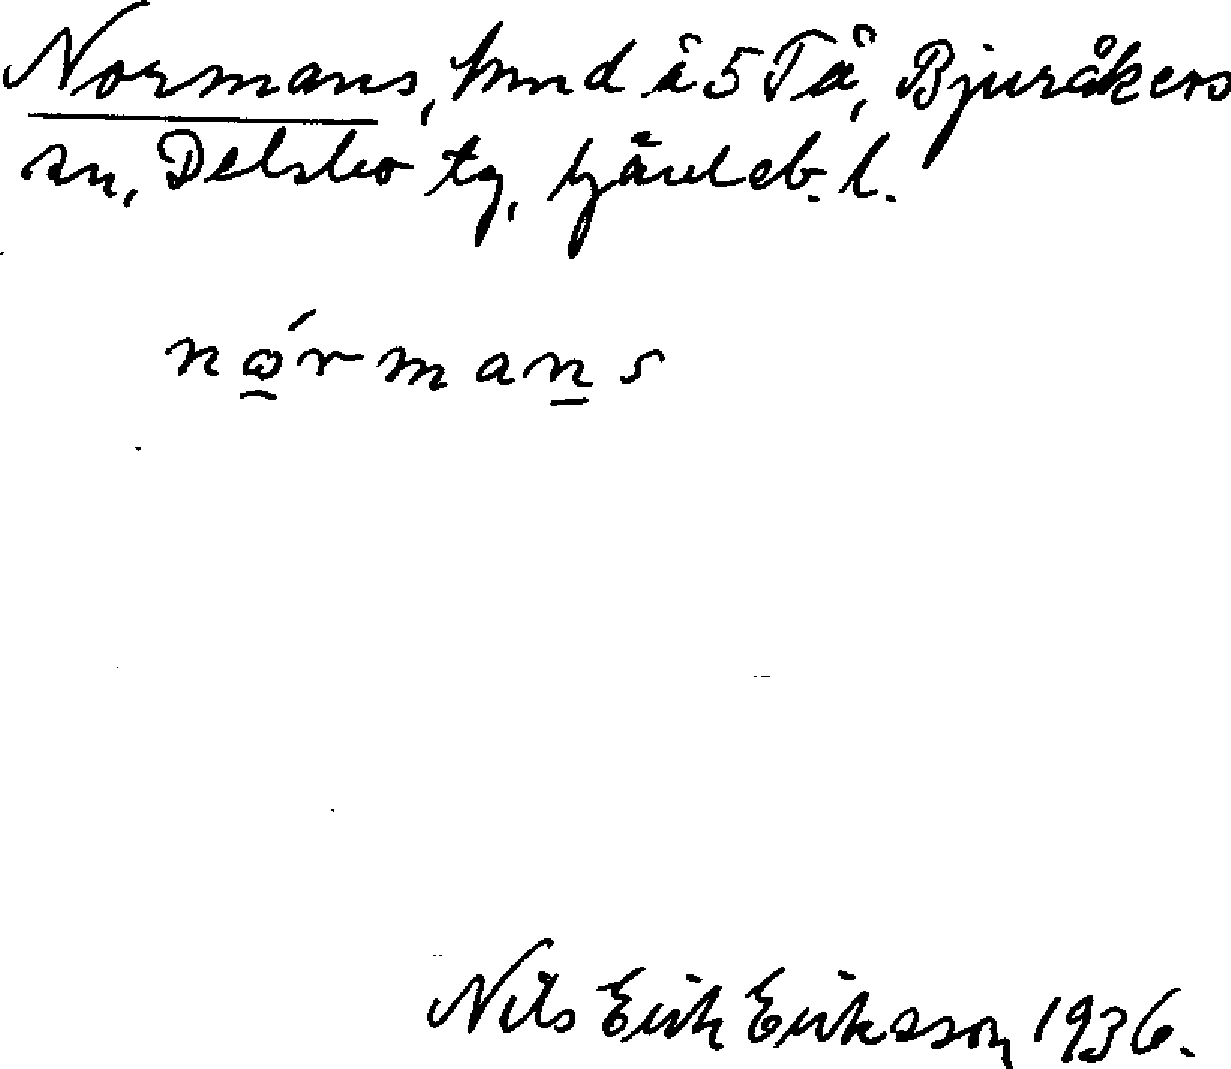 Normans, hmd å 5 Tå, Bjuråkers
sn, Delsbo tg, Gävleb. l.
nώ̱rmaṉs
Nils Erik Eriksson 1936.